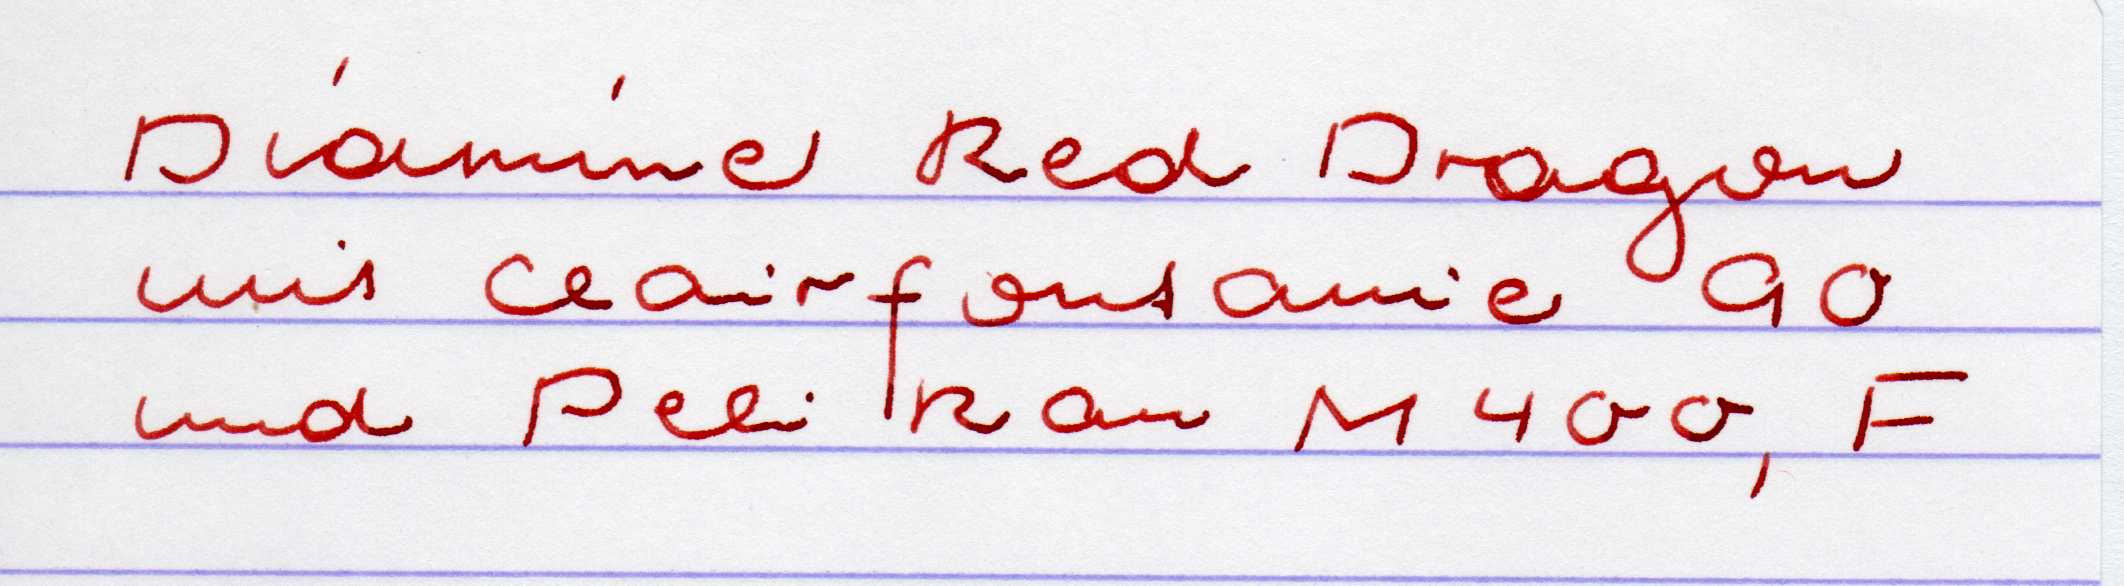 Diamine Red Dragon
mit Clairfontaine 90
und Pelikan M400, F